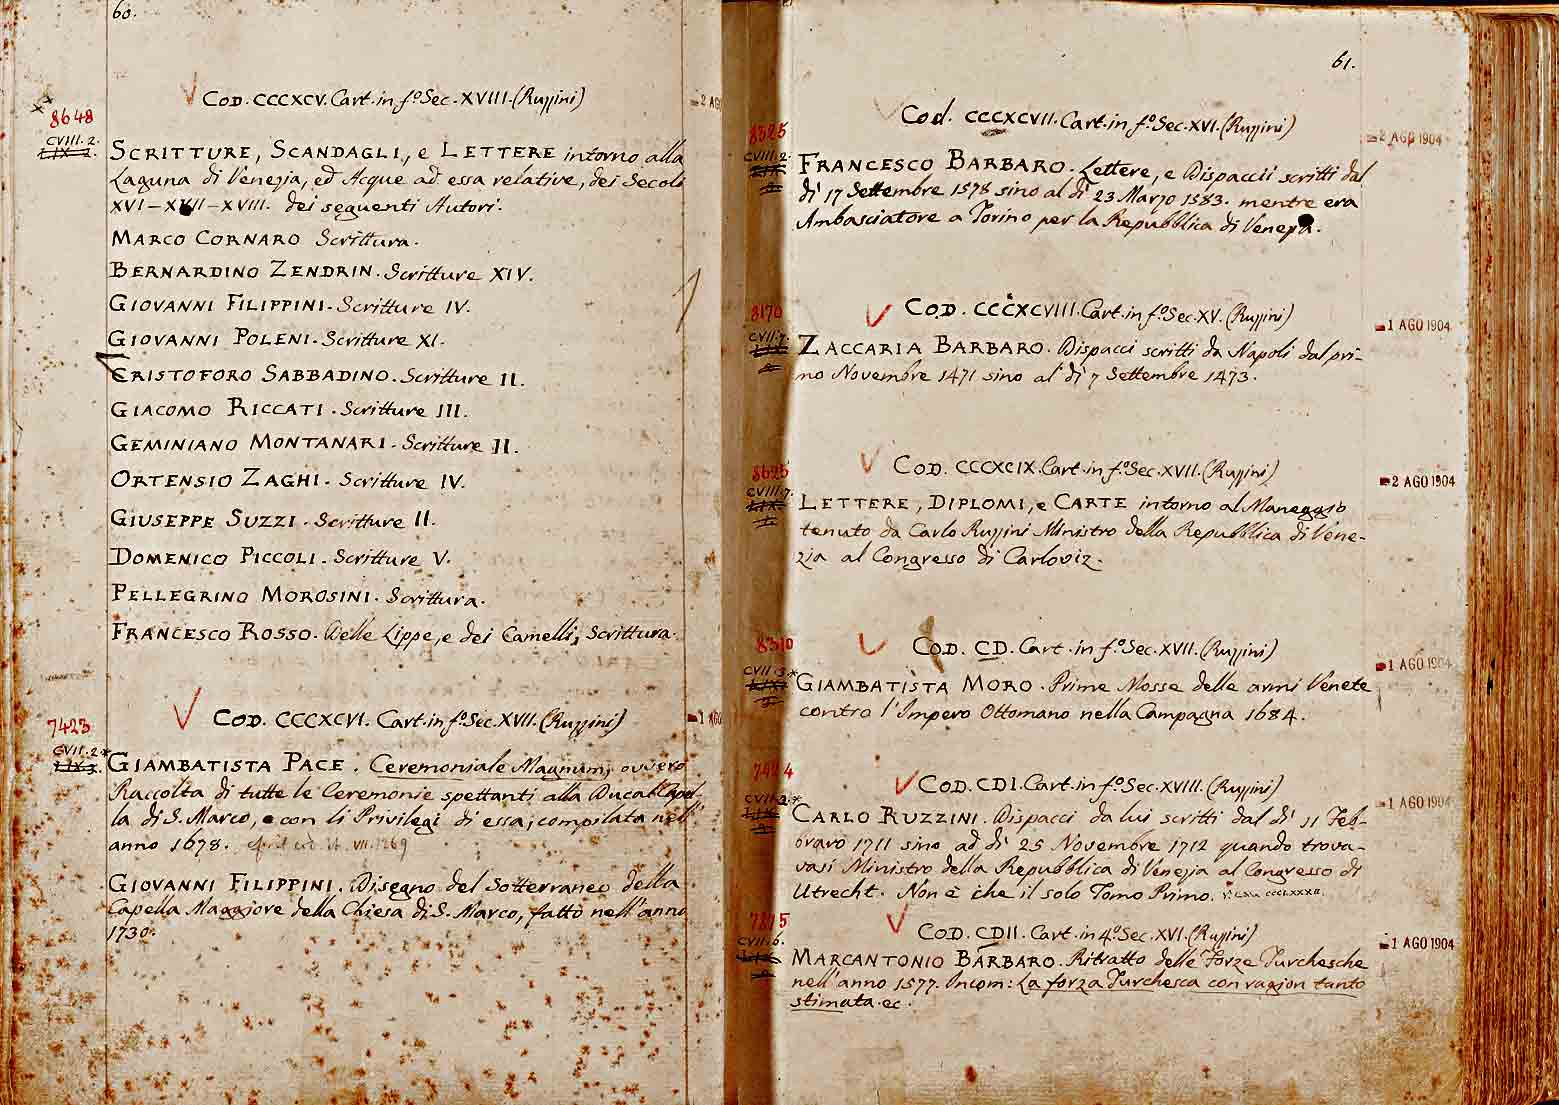 60.
Cod. CCCXCV. Cart. in fº Sec. XVIII. (Ruzzini)
2 AGO
8648
CVIII. 2.
SCRITTURE, SCANDAGLI, e LETTERE intorno alla
Laguna di Venezia, ed Acque ad essa relative, dei Secoli
XVI–XVII–XVIII. dei seguenti Autori.
MARCO CORNARO Scrittura.
BERNARDINO ZENDRIN. Scritture XIV.
GIOVANNI FILIPPINI. Scritture IV.
GIOVANNI POLENI. Scritture XI.
CRISTOFORO SABBADINO. Scritture II.
GIACOMO RICCATI. Scritture III.
GEMINIANO MONTANARI. Scritture II.
ORTENSIO ZAGHI. Scritture IV.
GIUSEPPE SUZZI. Scritture II.
DOMENICO PICCOLI. Scritture V.
PELLEGRINO MOROSINI. Scrittura.
FRANCESCO ROSSO. Delle Lippe, e dei Camelli, Scrittura.
Cod. CCCXCVI. Cart. in fº Sec. XVII. (Ruzzini)
1 AGO
7423
CVII. 2.*
GIAMBATISTA PACE. Ceremoniale Magnum, ovvero
Raccolta di tutte le Ceremonie spettanti alla Ducal Capel-
la di S. Marco, e con li Privilegi di essa, compilata nell'
anno 1678. VII. 1269
GIOVANNI FILIPPINI. Disegno del Sotterraneo della
Capella Maggiore della Chiesa di S. Marco, fatto nell'anno
1730.
61.
Cod. CCCXCVII. Cart. in fº Sec. XVI. (Ruzzini)
2 AGO 1904
8325
CVIII. 2.
FRANCESCO BARBARO. Lettere, e Dispaccii scritti dal
dì 17 Settembre 1578 sino al dì 23 Marzo 1583. mentre era
Ambasciatore a Torino per la Repubblica di Venezia.
Cod. CCCXCVIII. Cart. in fº Sec. XV. (Ruzzini)
1 AGO 1904
8170
CVII. 7.
ZACCARIA BARBARO. Dispacci scritti da Napoli dal pri-
mo Novembre 1471 sino al dì 7 Settembre 1473.
Cod. CCCXCIX. Cart. in fº Sec. XVII. (Ruzzini)
2 AGO 1904
8625
CVIII. 7.
LETTERE, DIPLOMI, e CARTE intorno al Maneggio
tenuto da Carlo Ruzzini Ministro della Repubblica di Vene-
zia al Congresso di Carloviz.
Cod. CD. Cart. in fº Sec. XVII. (Ruzzini)
1 AGO 1904
8310
CVII. 3.*
GIAMBATISTA MORO. Prime Mosse delle armi Venete
contro l'Impero Ottomano nella Campagna 1684.
Cod. CDI. Cart. in fº Sec. XVIII. (Ruzzini)
1 AGO 1904
7424
CVII. 2.*
CARLO RUZZINI. Dispacci da lui scritti dal dì 11 Feb-
braro 1711 sino ad dì 25 Novembre 1712 quando trova-
vasi Ministro della Repubblica di Venezia al Congresso di
Utrecht. Non è che il solo Tomo Primo.
Cod. CDII. Cart. in 4º Sec. XVI. (Ruzzini)
1 AGO 1904
7815
CVII. 6.
MARCANTONIO BARBARO. Ritratto delle Forze Turchesche
nell'anno 1577. Incom: La forza Turchesca con ragion tanto
stimata ec.